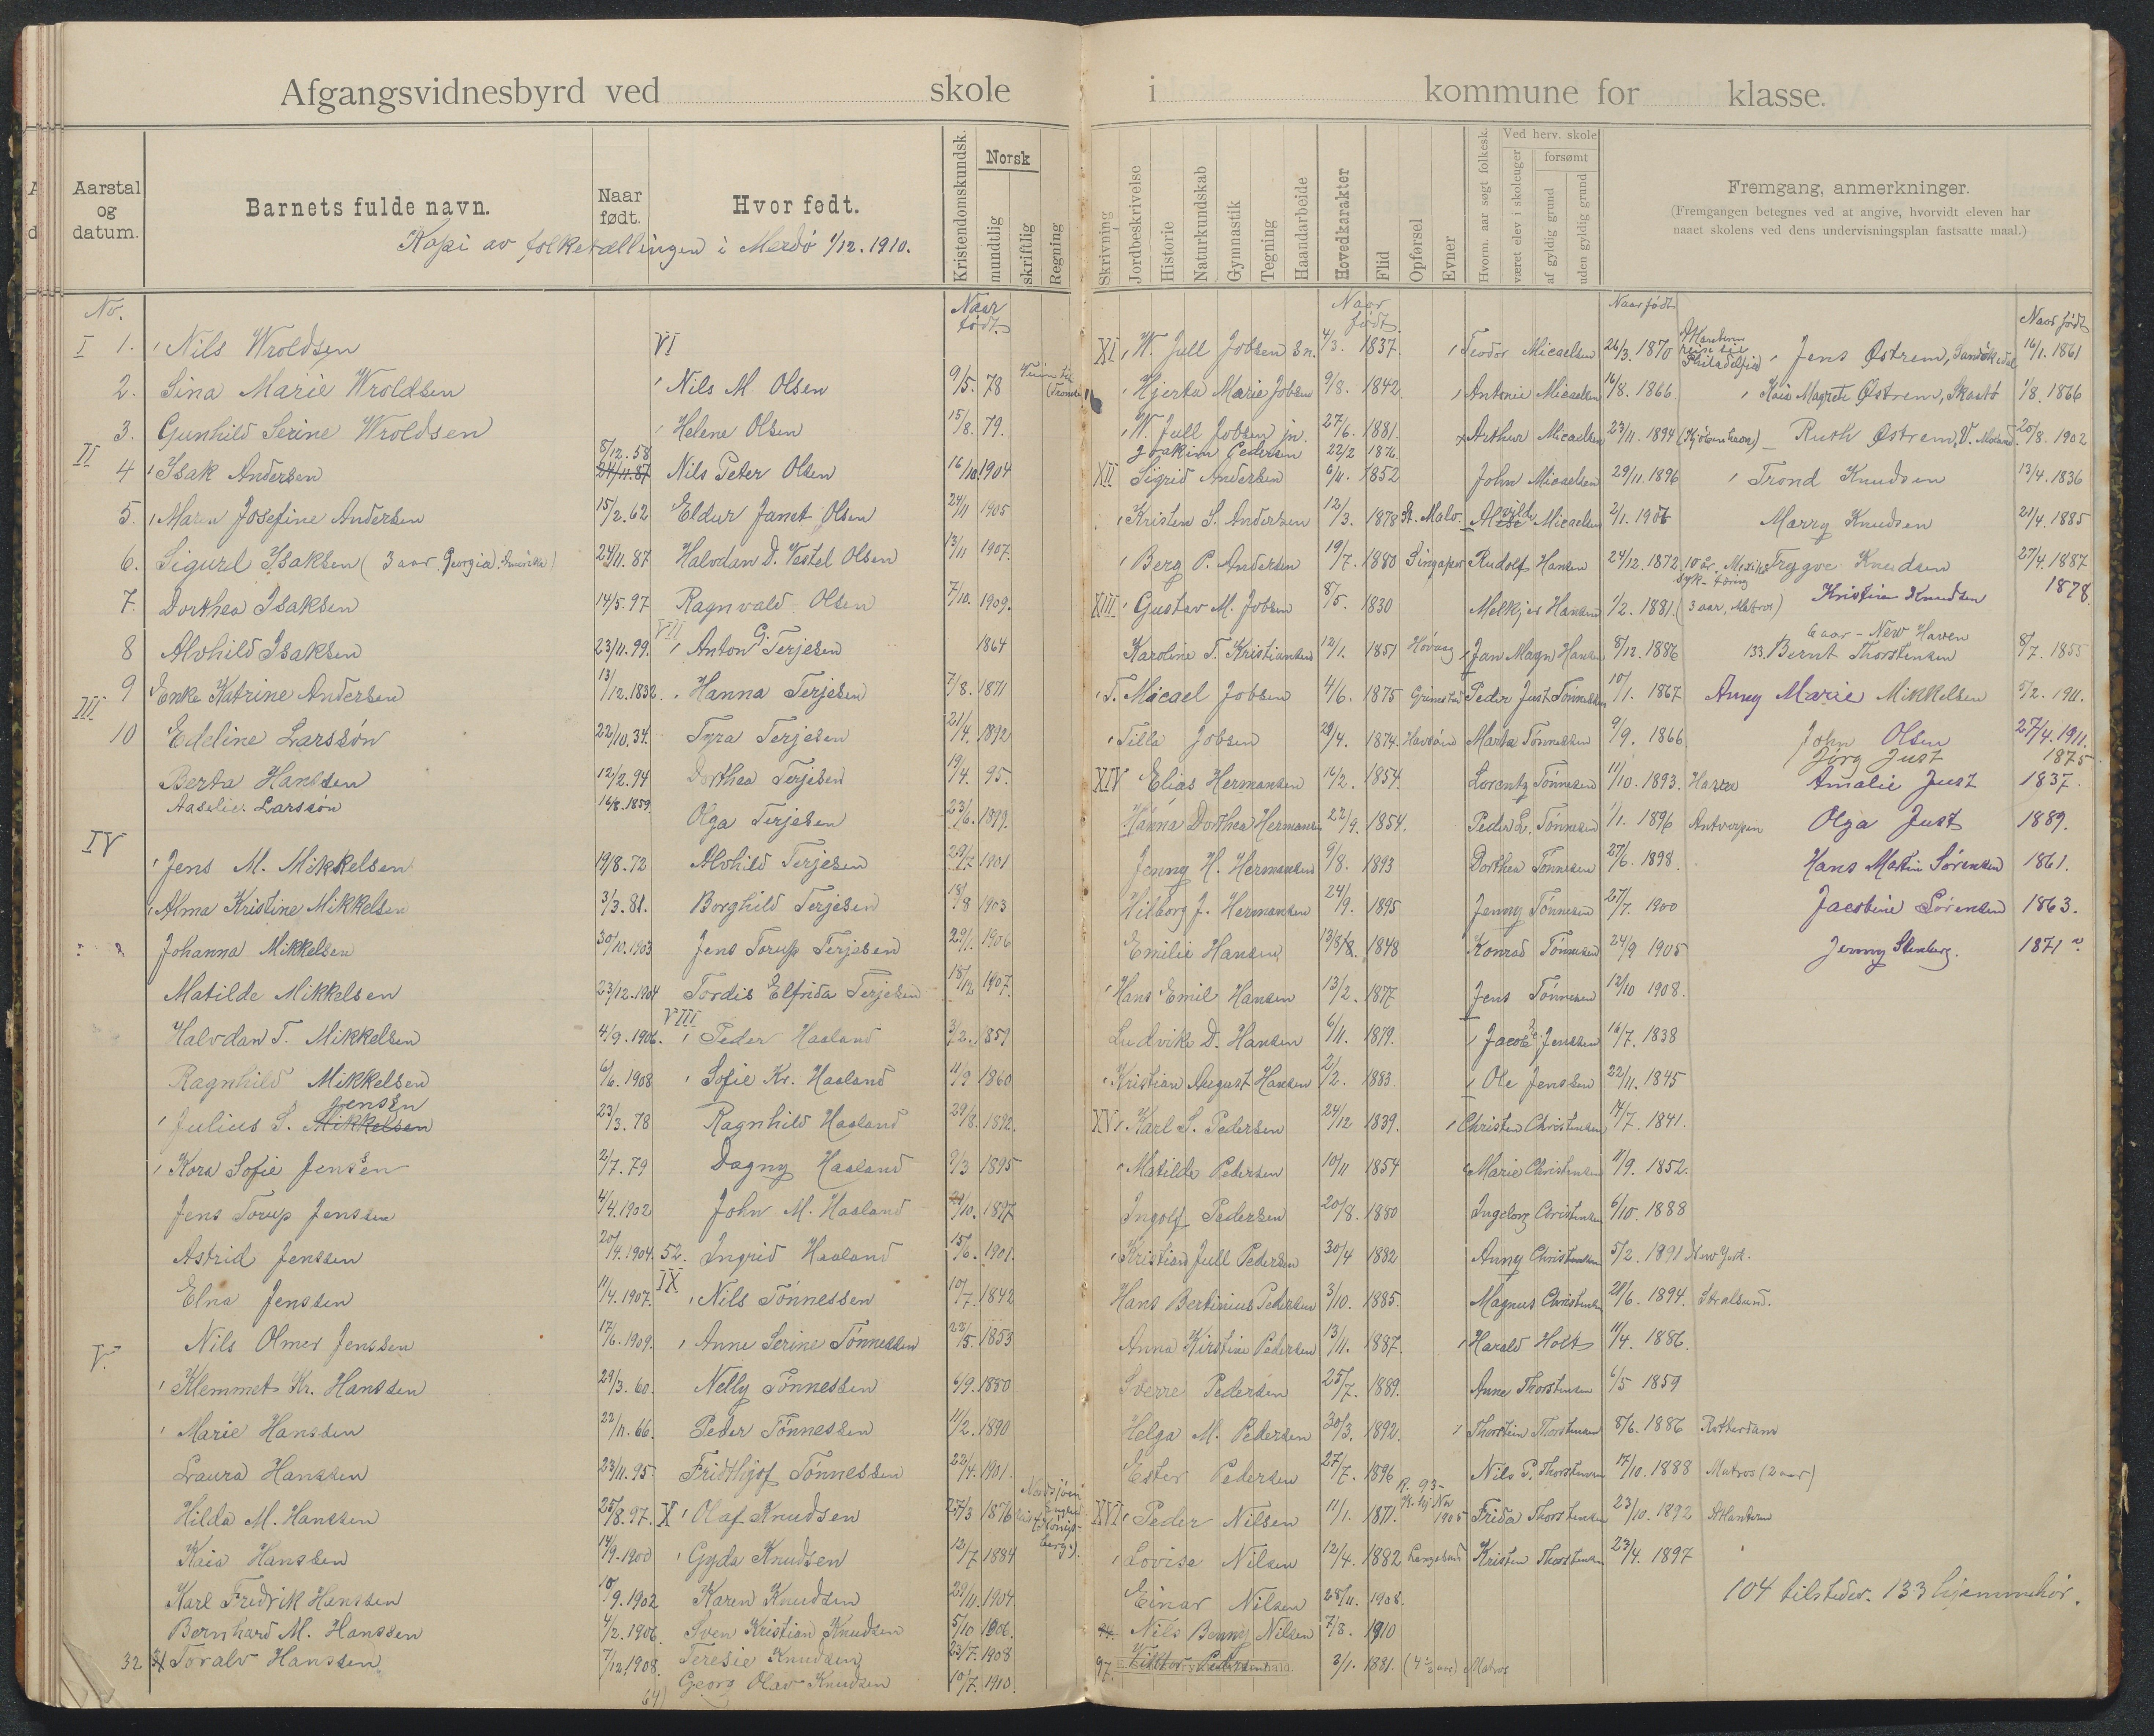 Afgangsvidnesbyrd ved skole i kommune for klasse.
Aarstal og datum.
Barnets fulde navn.
Naar født.
Hvor født.
Kristendomskundsk.
Norsk
mundtlig
skriftlig
Regning
Skrivning
Jordbeskrivelse
Historie
Naturkundskab
Gymnastik
Tegning
Haandarbeide
Hovedkarakter
Flid
Opførsel
Evner
Hvorm. aar søgt folkesk.
Ved herv. skole
været elev i skoleuger
forsømt
af gyldig grund
uden gyldig grund
Fremgang, anmerkninger.
(Fremgangen betegnes ved at angive, hvorvidt eleven har
naaet skolens ved dens undervisningsplan fastsatte maal.)
Kopi av folketællingen i Merdö 1/12. 1910.
No.
I 1. Nils Wroldsen
2. Sina Marie Wroldsen
3. Gunhild Serine Wroldsen
II 4 Isak Andersen 8/12.58 24/11.87
5. Maren Josefine Andersen 15/2.62
6. Sigurd Isaksen (3 aar Georgia. Amerika) 24/11.87
7. Dorthea Isaksen 14/5.97
8 Alvhild Isaksen 23/11.99.
9 Enke Katrine Andersen 13/12.1832.
III 10 Edeline Larssön 22/10.34.
Berta Hanssen 12/2.94
Aaselie Larssön 16/8.1859
IV Jens M. Mikkelsen 19/8.72
Alma Kristine Mikkelsen 3/3.81.
Johanna Mikkelsen 30/10.1903
Matilde Mikkelsen 23/12.1904
Halvdan T. Mikkelsen 4/9.1906.
Ragnhild Mikkelsen 6/6.1908
Jensen
Julius S. Mikkelsen 23/3.78
Kora Sofie Jensen 2/7.79
Jens Torup Jenssen 4/4.1902
Astrid Jenssen 20/4.1904.
Elna Jenssen 11/4.1907.
Nils Olmer Jenssen 17/6.1909.
V. Klemmet Kr. Hanssen 29/3.60.
Marie Hanssen 22/11.66.
Laura Hanssen 23/11.95.
Hilda M. Hanssen 25/8.97.
Kaia Hanssen 14/9.1900
Karl Fredrik Hanssen 10/9.1902
Bernhard M. Hanssen 4/2.1906.
32 Toralv Hanssen 7/12.1908.
Naar født
VI
Nils M. Olsen 9/5. 78
Helene Olsen 15/8. 79.
Nils Peter Olsen 16/10.1904
Eldur Janet Olsen 24/11 1905
Halvdan D. Vestel Olsen 13/11 1907.
Ragnvald Olsen 7/10. 1909.
VII Anton G. Terjesen 1864
Hanna Terjesen 7/8. 1871
Tyra Terjesen 21/4. 1892
Dorthea Terjesen 19/4. 95.
Olga Terjesen 23/6. 1899.
Alvhild Terjesen 29/7 1901
Borghild Terjesen 18/8 1903
Jens Torup Terjesen 29/1. 1906
Tordis Elfrida Terjesen 18/12 1907.
VIII Peder Haaland 3/2. 1859
Sofie Kr. Haaland 11/9 1860
Ragnhild Haaland 29/8. 1892.
Dagny Haaland 9/3 1895
John M. Haaland 24/10. 1897
52. Ingrid Haaland 15/6. 1901.
IX Nils Tönnessen 10/7. 1842
Anne Serine Tönnessen 22/5. 1853
Nelly Tönnessen 6/9. 1880
Peder Tönnessen 11/2. 1890
Fridthjof Tönnessen 22/4. 1901.
X Olaf Knudsen 27/3 1876
Gyda Knudsen 12/7 1884
Karen Knudsen 29/11. 1904.
Sven Kristian Knudsen 5/10 1906.
Teresie Knudsen 23/7. 1908
64) Georg Olav Knudsen 10/7. 1910.
Naar født.
XI W. Jull Jobsen sn. 4/3. 1837.
Hjerta Marie Jobsen 9/8. 1842.
W. Jull Jobsen jn. 27/6. 1881.
Joakim Pedersen 22/2 1876.
XII Sigrid Andersen 6/11. 1852
Kristen S. Andersen 12/3. 1878 St. Malo.
Berg P. Andersen 19/7. 1880 Singapor
XIII Gustav M. Jobsen 8/5. 1830
Karoline T. Kristiansen 12/1. 1851 Hövaag
T. Micael Jobsen 4/6. 1875 Grimstad
Tilla Jobsen 29/4. 1874.
XIV Elias Hermansen 16/2. 1854.
Hanna Dorthea Hermansen 22/9. 1854.
Jenny H. Hermansen 9/8. 1893
Hilborg J. Hermansen 24/9. 1895
Emilie Hansen 1848
Hans Emil Hansen 13/2. 1877
Ludvike D. Hansen 6/11. 1879.
Kristian August Hansen 2/2. 1883.
XV Karl S. Pedersen 24/12 1839.
Matilde Pedersen 10/11 1854
Ingolf Pedersen 20/8. 1880
Kristian Jull Pedersen 30/4 1882
Hans Bertinius Pedersen 3/10. 1885.
Anna Kirstine Pedersen 13/11. 1887.
Sverre Pedersen 25/7. 1889.
Helga M. Pedersen 30/3. 1892.
Ester Pedersen 27/7. 1896
XVI Peder Nilsen 11/1. 1871.
Lovise Nilsen 12/4. 1882 Langesund
Einar Nilsen 25/11. 1908.
Nils Benny Nilsen 7/8. 1910
97. Viktor Pedersen 3/1. 1881. Matros
Naar født
Teodor Micaelsen 26/3. 1870 Philadelfia
Antonie Micaelsen 16/8. 1866
Arthur Micaelsen 23/11. 1894 (Kjöbenhavn)
John Micaelsen 29/11. 1896
Alvilde Micaelsen 2/1. 1906
Rudolf Hansen 24/12. 1872. 10 år. Mexiko
Melkjer Hansen 1/2. 1881. (3 aar, Matros)
Jan Magn Hansen 8/12. 1886
Peder Just Tönnessen 10/1. 1867
Marta Tönnessen 9/9. 1866
Lorentz Tönnesen 11/10. 1893.
Peder L. Tönnesen 1/1. 1896 Antverpen
Dorthea Tönnesen 27/6. 1898.
Jenny Tönnesen 27/7. 1900
Konrad Tönnesen 24/9 1905
Jens Tönnesen 12/10 1908.
Jacob Jenssen 16/7. 1838
Ole Jenssen 22/11. 1845
Christen Christensen 14/7. 1841.
Marie Christensen 11/9. 1852.
Ingeborg Christensen 6/10. 1888
Anny Christensen 5/2. 1891 New York.
Magnus Christensen 21/6. 1894. Stralsund.
Harald Holt 11/4. 1886.
Anne Thorstensen 6/5 1859
Thorstein Thorstensen 8/6. 1886 Rotterdam
Nils P. Thorstensen 17/10. 1888 Matros (2 aar)
Frida Thorstensen 23/10. 1892
Kristen Thorstensen 23/4. 1897
Naar født
Jens Östrem, Sandökedal 16/1. 1861
Kaia Magrete Östrem, Skaatö 1/8. 1866
Ruth Östrem, 20/8. 1902
Trond Knudsen 13/4. 1836
Marry Knudsen 21/4. 1885
Trygve Knudsen 27/4. 1887
Kristine Knudsen 1878.
6 aar - New Haven
133. Bernt Thorstensen 8/7. 1855
Anny Marie Mikkelsen 5/2. 1911.
John Olsen 27/4. 1911.
Jörg Just 1875
Amalie Just 1837.
Olga Just 1889.
Hans Martin Sörensen 1861.
Jacobine Sörensen 1863.
Jenny Stenberg. 1871
104 tilstede. 133 hjemmehör.